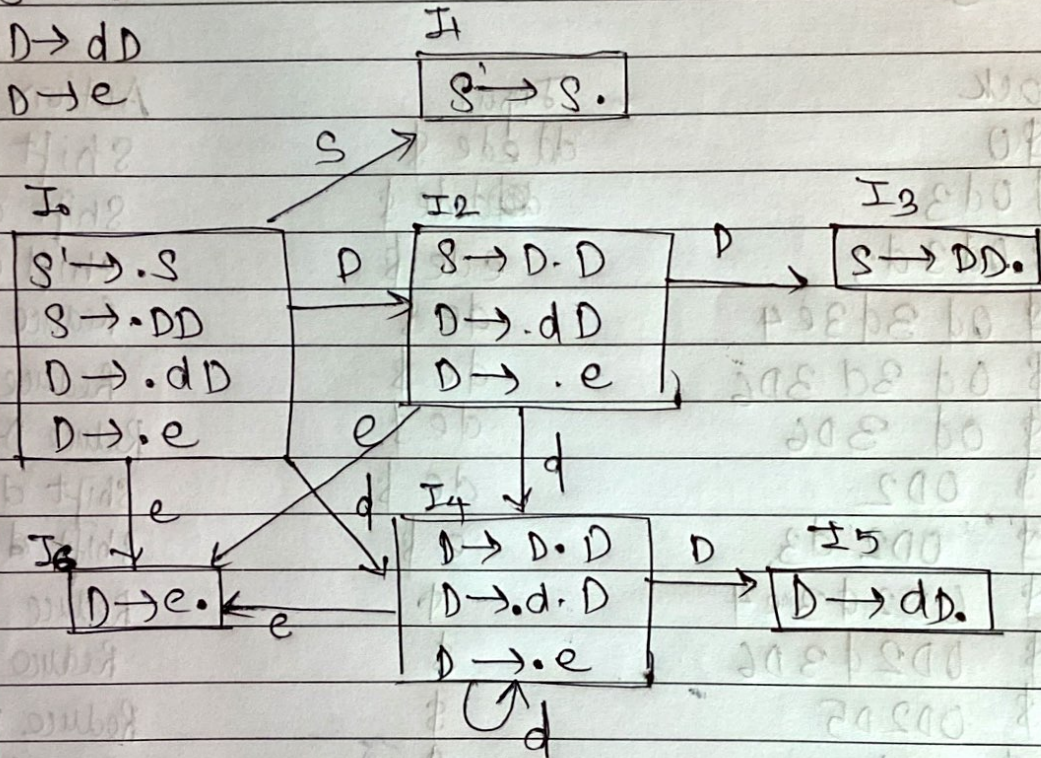 D→ dD
D→e
I1
S'→ S.
S
I0
S'→.S
S→.DD
D→.dD
D→.e
D
I2
S→D.D
D→.dD
D→ .e
D
I3
S→DD.
e
e
d
d
I6
D→e.
e
I4
D→ D.D
D→.d.D
D→.e
d
D
I5
D→dD.